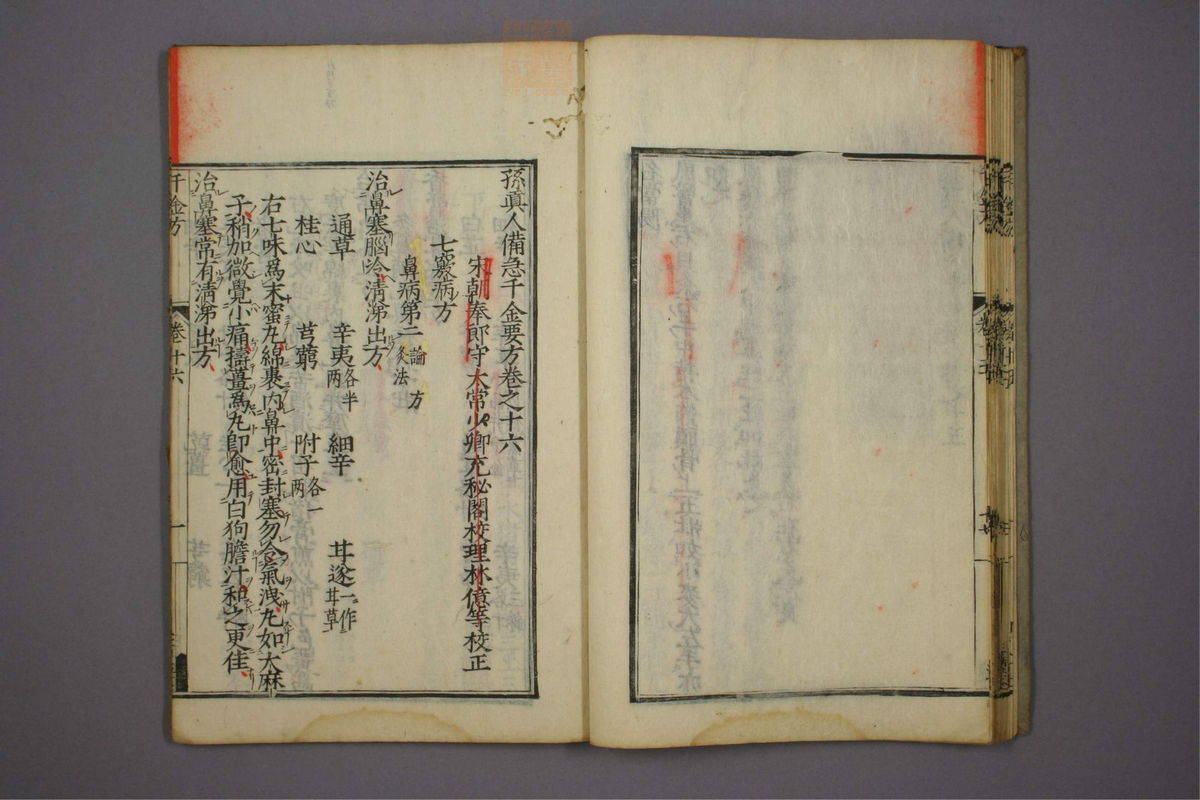 孫真人備急千金要方卷之十六
宋朝奉郎守太常少卿充秘閣校理林億等校正
七竅病方
鼻病第二 論 方 灸法
治鼻塞腦冷清涕出方
通草 辛夷各半兩 細辛 甘遂一作甘草
桂心 芎藭 附子各一兩
右七味爲末蜜丸綿裹内鼻中密封塞勿令氣洩丸如大麻
子稍加微覺小痛擣薑爲丸即愈用白狗膽汁和之更佳
治鼻塞常有清涕出方
千金方 卷十六 一